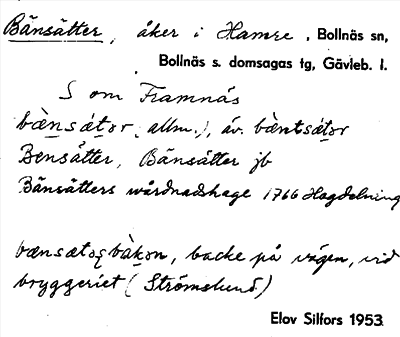 Bänsätter, åker i Hamre, Bollnäs sn,
Bollnäs s. domsagas tg, Gävleb. l.
S om Framnäs
bæ̀nsa̍tər (allm.), äv. bæ̀ntsa̍tər
Bensätter, Bänsätter jb
Bänsätters wårdnadshage 1766 Hagdelning
bænsætəsbàkən, backe på vägen, vid
bryggeriet (Strömslund)
Elov Silfors 1953